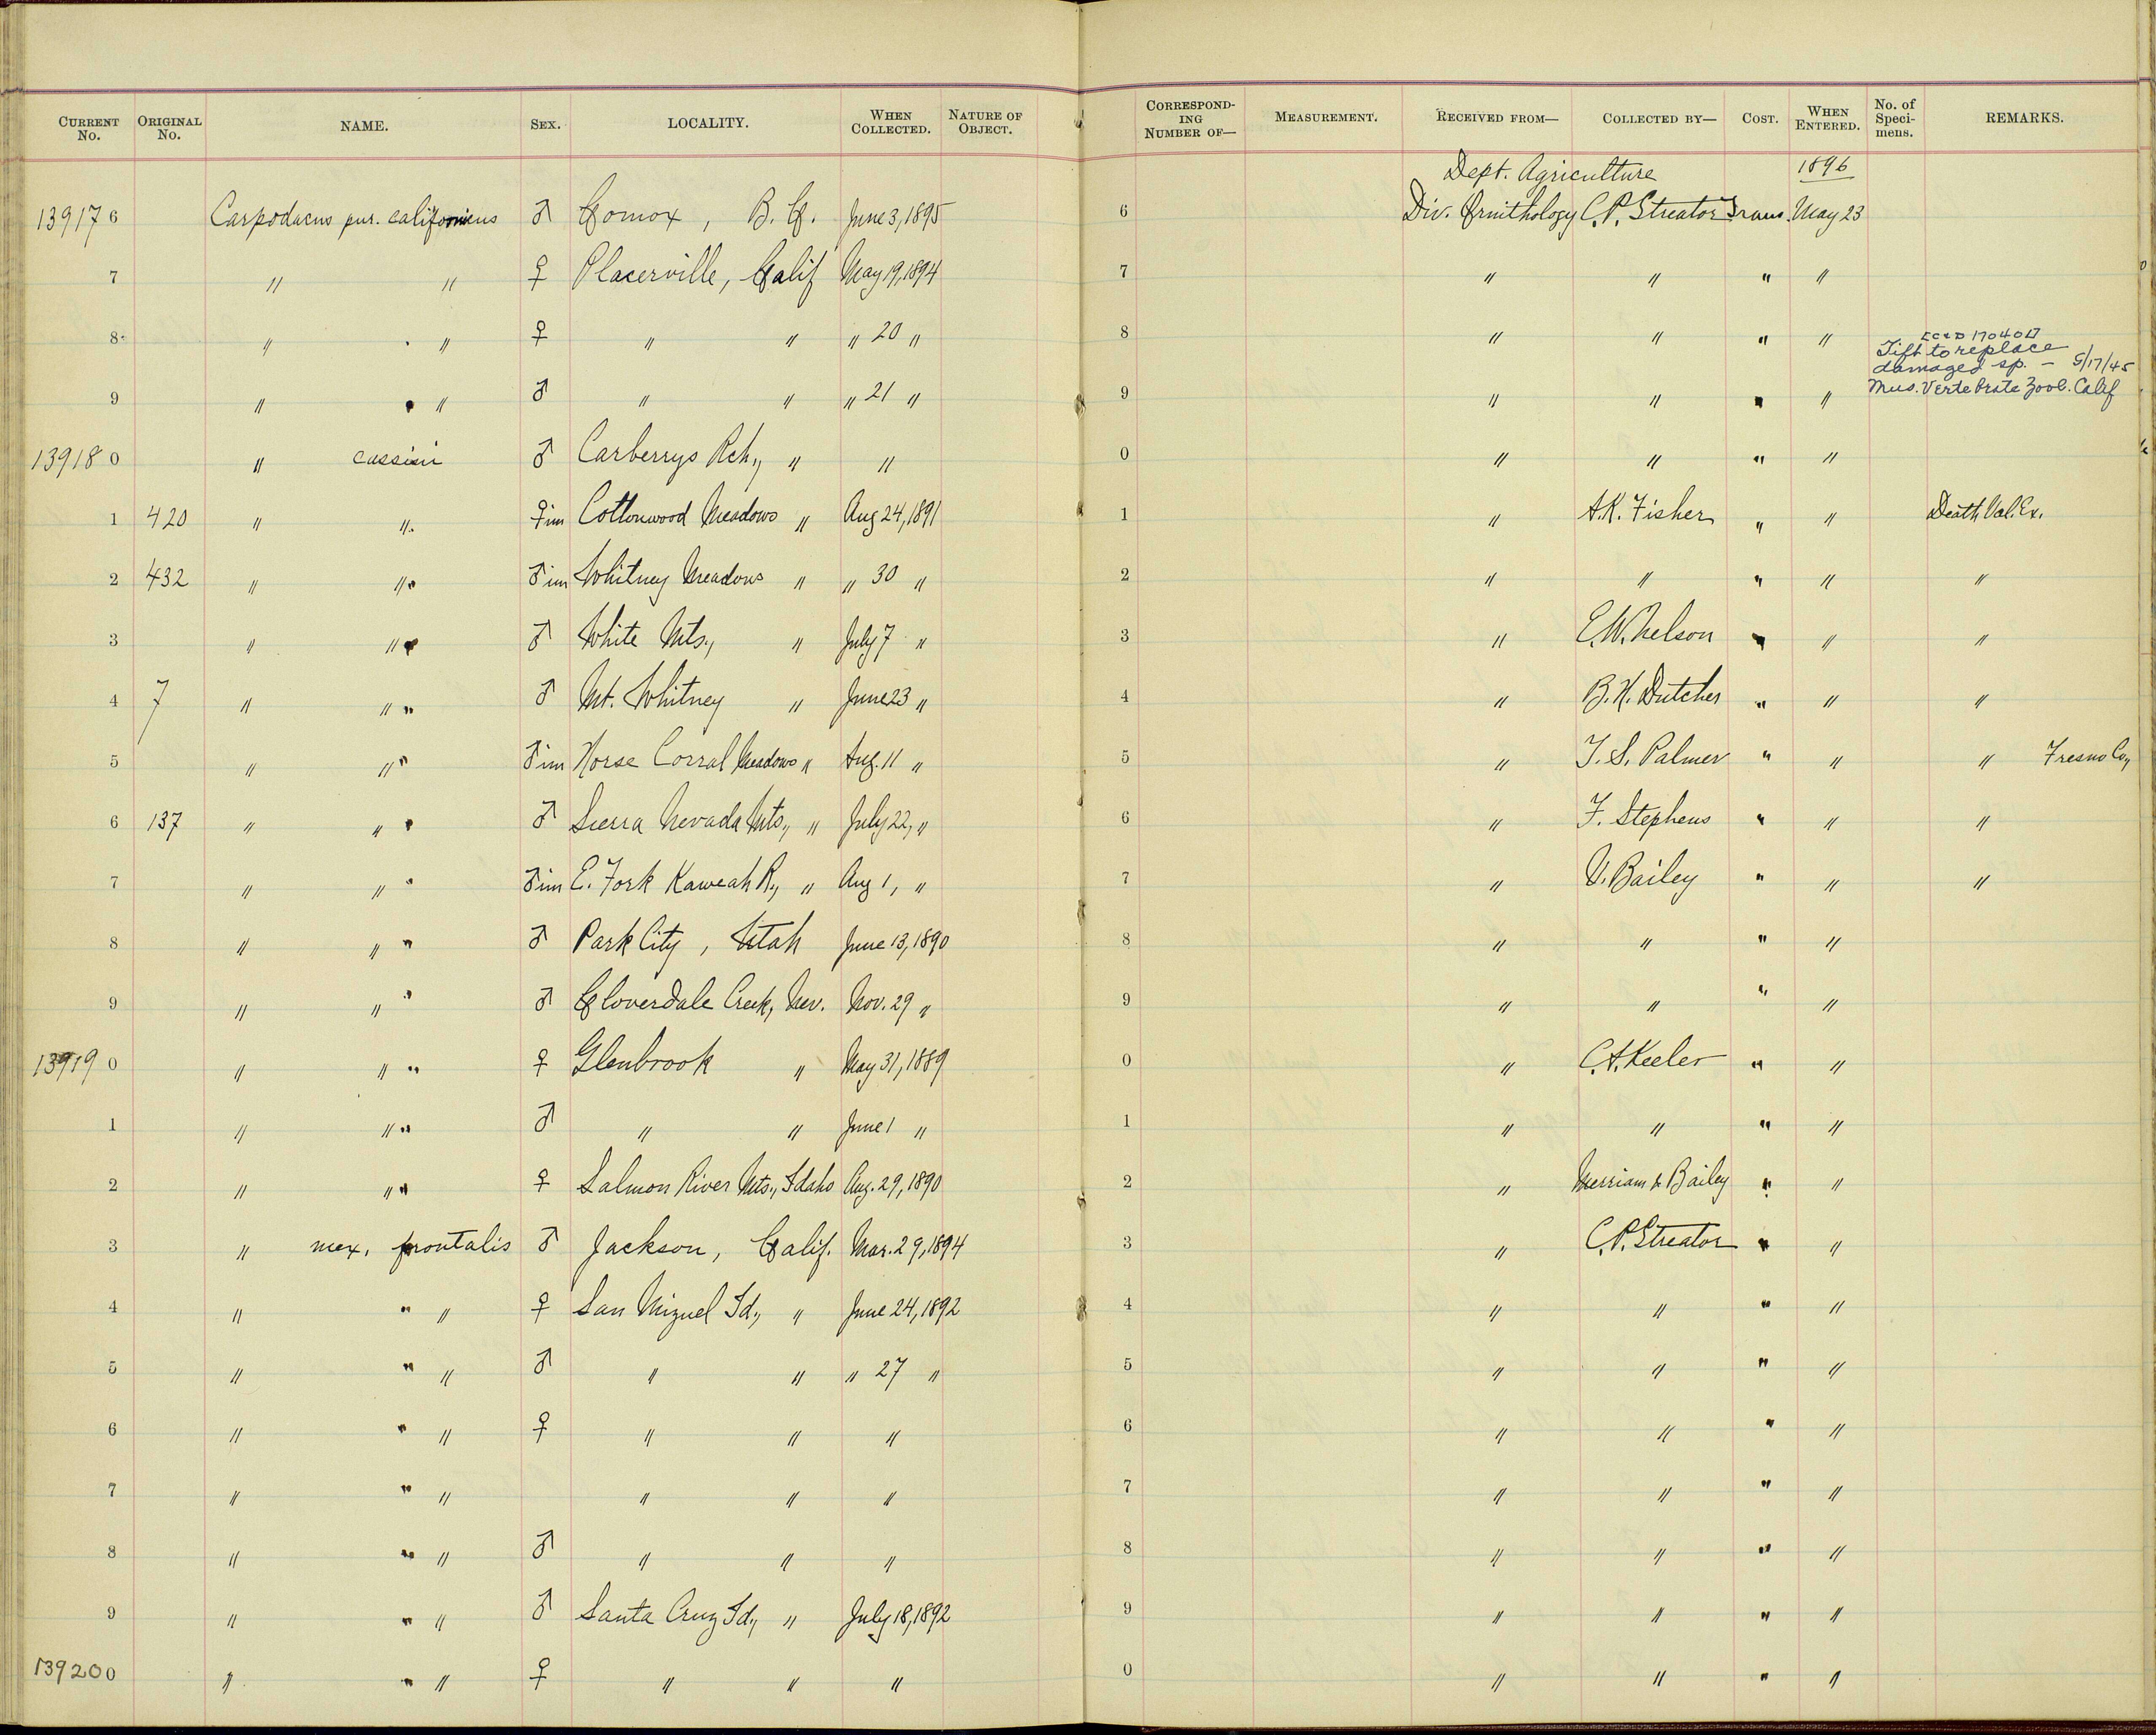 CURRENT No. ORIGINAL No. NAME. SEX. LOCALITY. WHEN COLLECTED. NATURE OF OBJECT. CORRESPONDING NUMBER OF— MEASUREMENT. RECEIVED FROM— COLLECTED BY— COST. WHEN ENTERED. No. of Specimens. REMARKS.
Dept. Agriculture 1896
139176 Carpodacus pur. californicus ♂ Comox, B.C. June 3, 1895 6 Div. Ornithology C.P. Streator Trans. May 23
7 " " ♀ Placerville, Calif May 19, 1894 7 " " " "
8 " " ♀ " " " 20 " 8 " " " "
Gift to replace
damaged sp. - 5/17/45
Mus. Vertebrate Zool. Calif
9 " " " ♂ " " " 21 " 9 " " " "
139180 " cassini ♂ Carberrys Rch., " " 0 " " " "
1 420 " " ♀ im Cottonwood Meadows " Aug 24, 1891 1 " A.K. Fisher " " Death Val. Ex.
2 432 " " " ♂ im Whitney Meadows " " 30 " 2 " " " " "
3 " " " ♂ White Mts., " July 7 " 3 " E.W. Nelson " " "
4 7 " " " ♂ Mt. Whitney " June 23 " 4 " B.H. Dutcher " " "
5 " " " ♂ im Horse Corral Meadows " Aug. 11 " 5 " T.S. Palmer " " " Fresno Co,
6 137 " " " ♂ Sierra Nevada Mts., " July 22, " 6 " F. Stephens " " "
7 " " " ♂ im E. Fork Kaweah R., " Aug 1, " 7 " V. Bailey " " "
8 " " " ♂ Park City, Utah June 13, 1890 8 " " " "
9 " " " ♂ Cloverdale Creek, Nev. Nov. 29 " 9 " " " "
139190 " " " ♀ Glenbrook " May 31, 1889 0 " C.A. Keeler " "
1 " " " ♂ " " June 1 " 1 " " " "
2 " " " ♀ Salmon River Mts., Idaho Aug. 29, 1890 2 " Merriam & Bailey " "
3 " mex. frontalis ♂ Jackson, Calif. Mar. 29, 1894 3 " C.P. Streator " "
4 " " " ♀ San Miguel Id., " June 24, 1892 4 " " " "
5 " " " ♂ " " " 27 " 5 " " " "
6 " " " ♀ " " " 6 " " " "
7 " " " " " " 7 " " " "
8 " " " ♂ " " " 8 " " " "
9 " " " ♂ Santa Cruz Id., " July 18, 1892 9 " " " "
139200 " " " ♀ " " " 0 " " " "